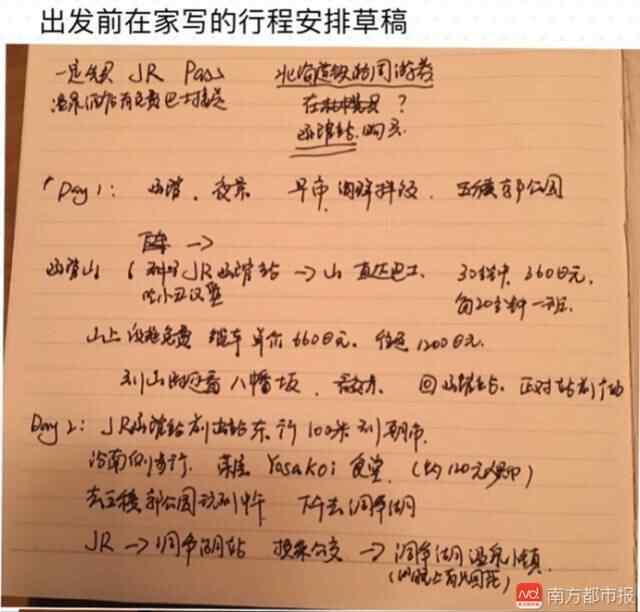 出发前在家写的行程安排草稿
一定先买 JR Pass 北海道铁路周游券
温泉酒店有免费巴士接送 在 ?
函馆站 购买
Day 1: 函馆、夜景 早市、海鲜拌饭、五稜郭公园
函馆山 JR函馆站 → 山 直达巴士、30分钟、360日元、
吃小丑汉堡 每20分钟一班
山上 免费 缆车 单程 660日元、往返 1200日元、
到山 看八幡坂、 回函馆站、正对站前广场
Day 2: JR函馆站前出站东行100米到朝市、
Yosakoi 食堂、(约120元人民币)
去五稜郭公园玩到中午 下午去洞爷湖
JR → 洞爷湖站 换乘公交 → 洞爷湖温泉小镇
(湖上有烟花)
南方都市报